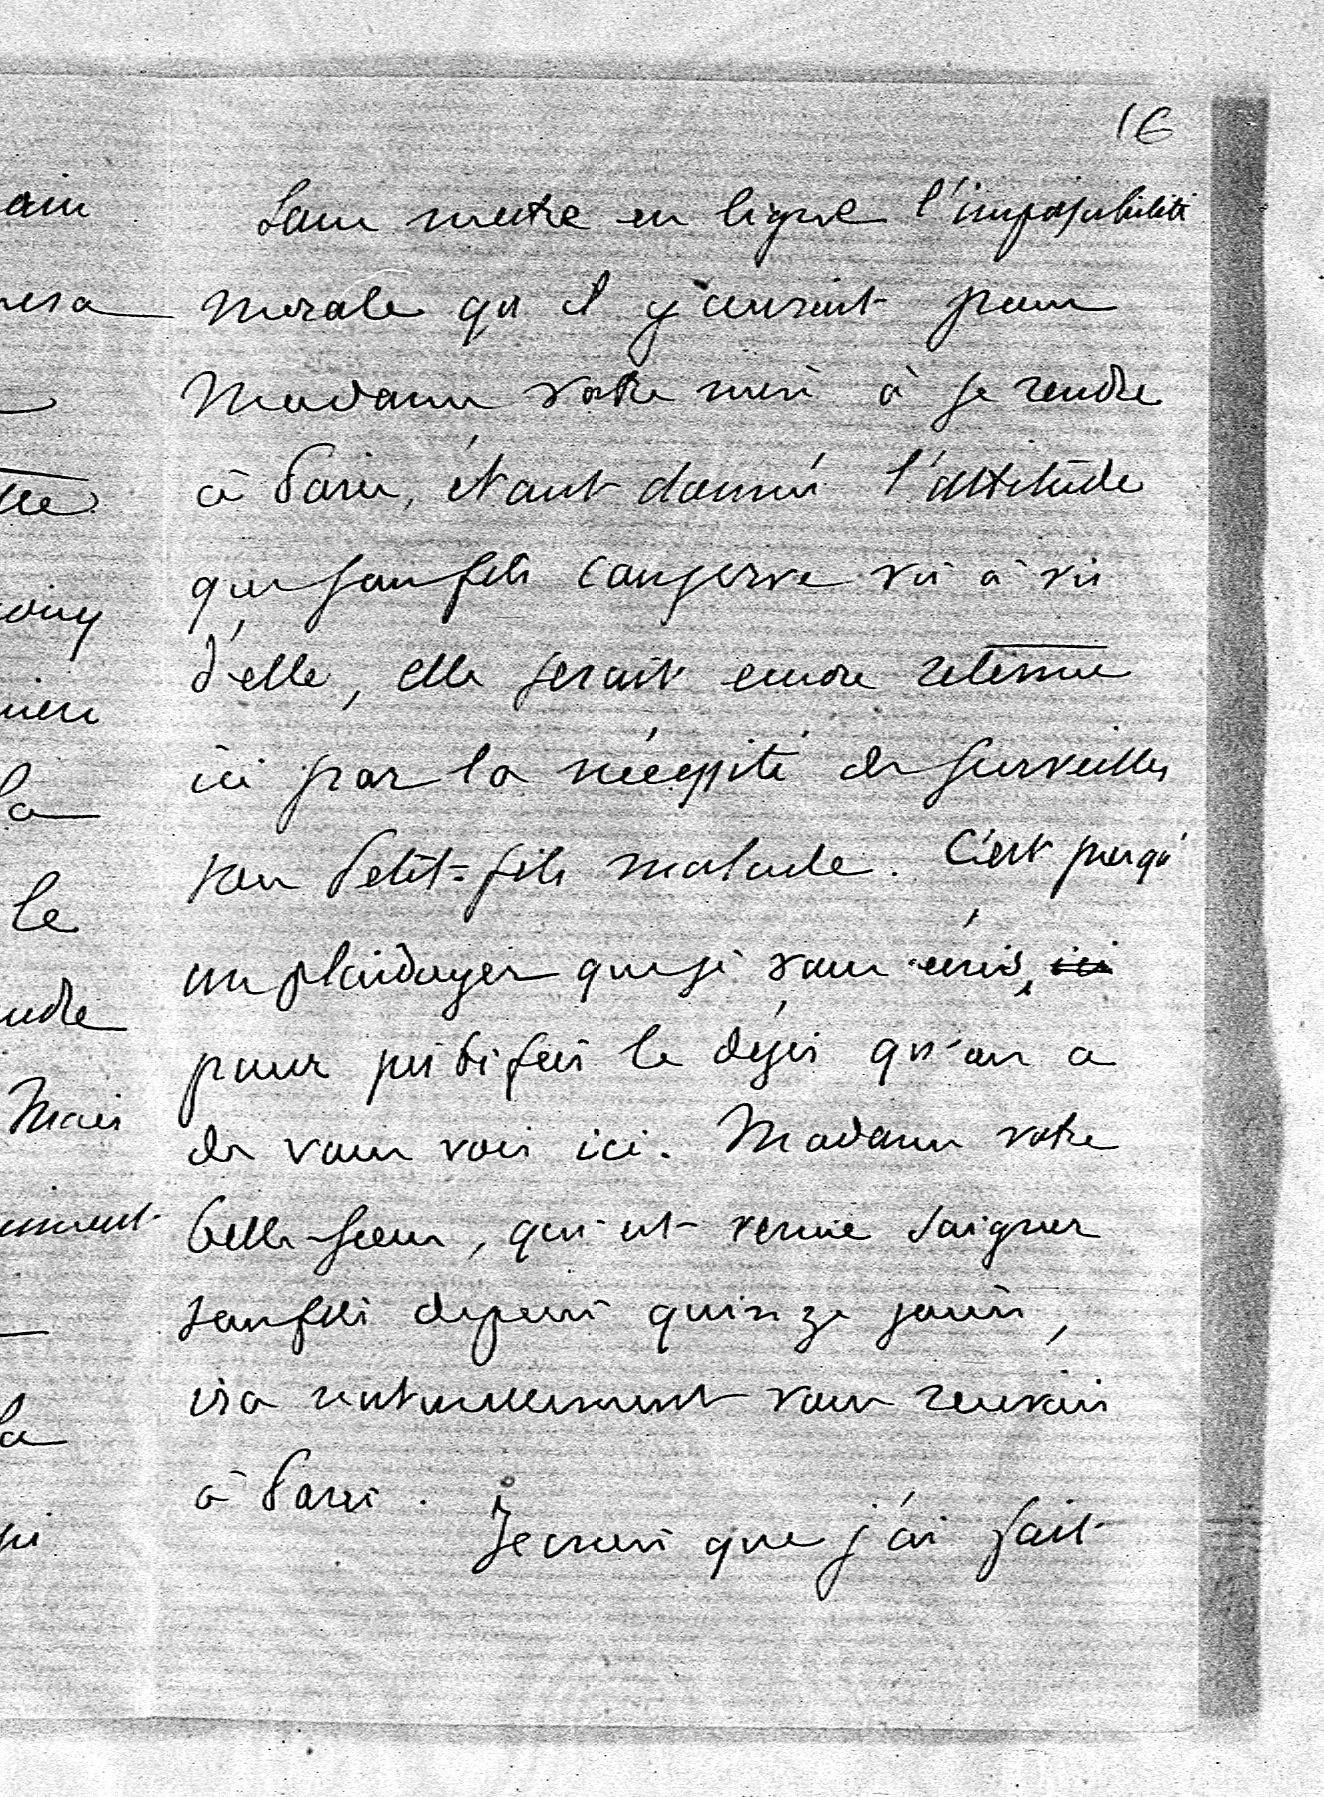 16
Sans mettre en ligne l'impossibilité
morale qu'il y aurait pour
Madame votre mère à se rendre
à Paris, étant donné l'attitude
que son fils conserve vis à vis
d'elle, elle serait encore retenue
ici par la nécessité de surveiller
son Petit=fils malade. C'est presqu'
un plaidoyer que je vous écris, ici
pour justifier le désir qu'on a
de vous voir ici. Madame votre
belle-soeur, qui est venue soigner
son fils depuis quinze jours,
ira naturellement vous revoir
à Paris.
Je crois que j'ai fait
la
le
Mais
la